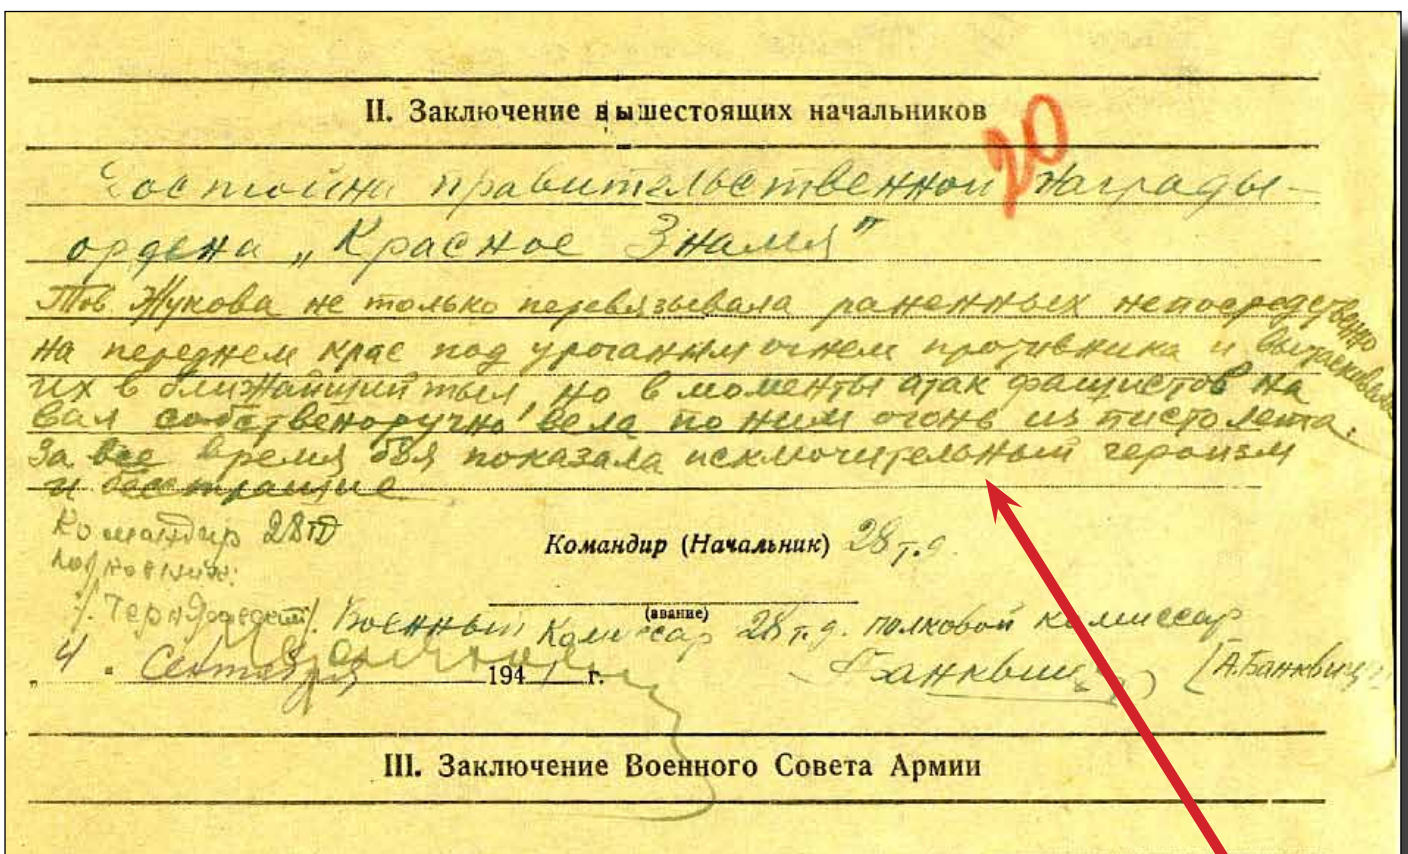 II. Заключение вышестоящих начальников
20
Достойна правительственной награды-
ордена „Красное Знамя"
Тов Жукова не только перевязывала раненных непосредственно
на переднем крае под ураганным огнем противника и вытаскивала
их в ближайший тыл, но в моменты атак фашистов на
вал собственоручно вела по ним огонь из пистолета.
За все время боя показала исключительный героизм
и бесстрашие
Командир 28тд
полковник:
Командир (Начальник) 28 т.д.
(звание)
Военный Комиссар 28 т.д. полковой комиссар
„4" Сентября 1941 г.
Банквицер [А.Банквицер]
III. Заключение Военного Совета Армии